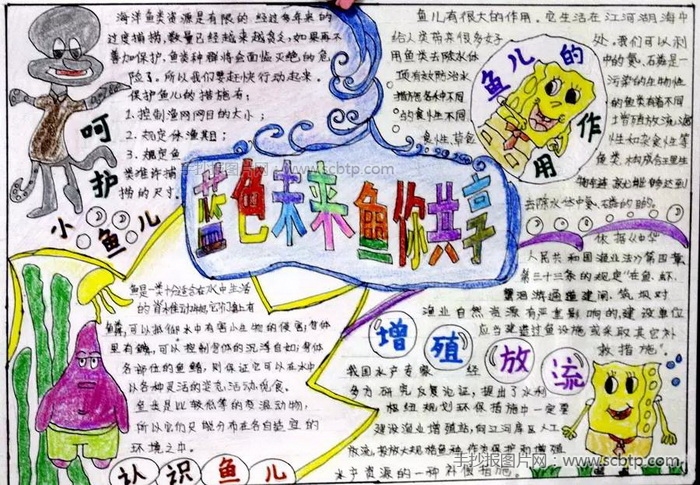 海洋鱼类资源是有限的 经过多年来的
过度捕捞,数量已经越来越少,如果再不
善加保护,鱼类种群将会面临灭绝的危
险了。所以我们要赶快行动起来。
保护鱼儿的措施有:
1.控制渔网网目的大小;
2.规定休渔期;
3.规定鱼
类准许捕
捞的尺寸。
呵护
小鱼儿
蓝色未来 鱼你共享
手抄报图片网:www.scbtp.com
鱼儿有很大的作用。它生活在江河湖海中
给人类带来很多好处。我们可以利
用鱼类去除水体中的氮、石磷是一
项有效防治水污染的生物性
措施各种不同的鱼类有着不同
的食性不同
食性、草食性如杂食性等
鱼类
去除水体中氮、磷的目的。
鱼儿的作用
依据《中华
人民共和国渔业法》第四章
第三十二条的规定"在鱼、虾、
蟹洄游通道建闸、筑坝对
渔业自然资源有严重影响的,建设单位
应当建造过鱼设施或采取其它补
救措施"。
鱼是一类门适合在水中生活
鳞,可以抵御水中有害小生物的侵害;身体
里有鳔,可以控制身体的沉浮自如;身体
各部位的鱼鳍,则保证它可以在水中
以各种灵活的姿态活动觅食。
鱼类是比较低等的变温动物,
所以它们只能分布在各自适宜的
环境之中。
认识鱼儿
增殖放流
我国水产专家 经
多方研究反复论证,提出了水利
枢纽规划环保措施中一定要
建设渔业增殖站,向江河库区人工
放流,投放大规格鱼种,作为保护和增殖
水产资源的一种补偿措施。
手抄报图片网:www.scbtp.com